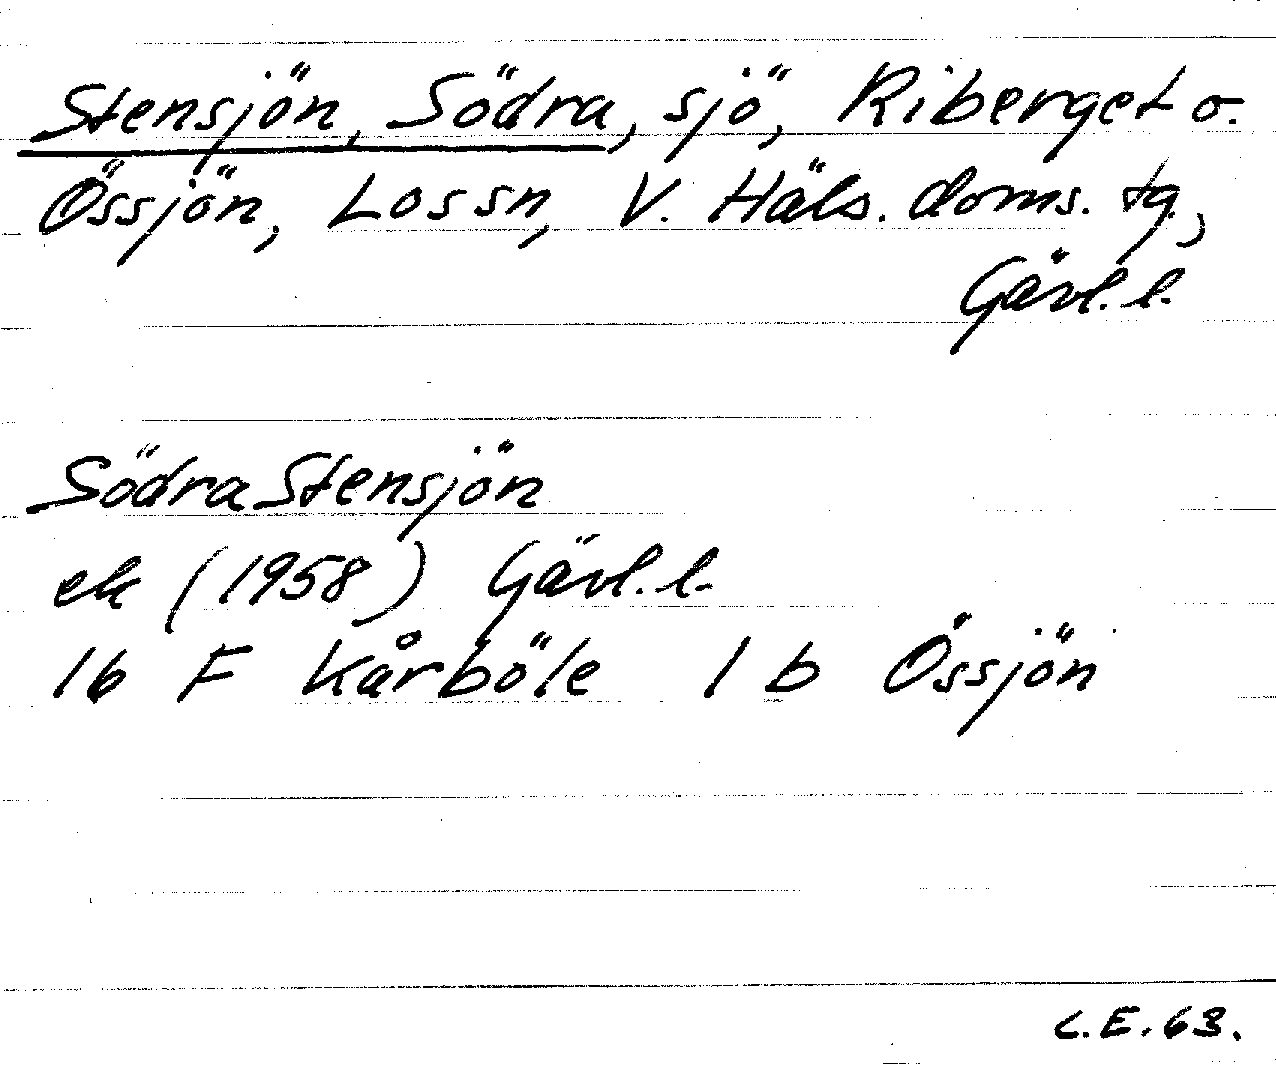 Stensjön, Södra, sjö, Riberget o.
Össjön, Los sn, V. Häls. doms. tg.,
Gävl. l.
Södra Stensjön
ek (1958) Gävl. l.
16 F Kårböle 1 b Össjön
C.E. 63.